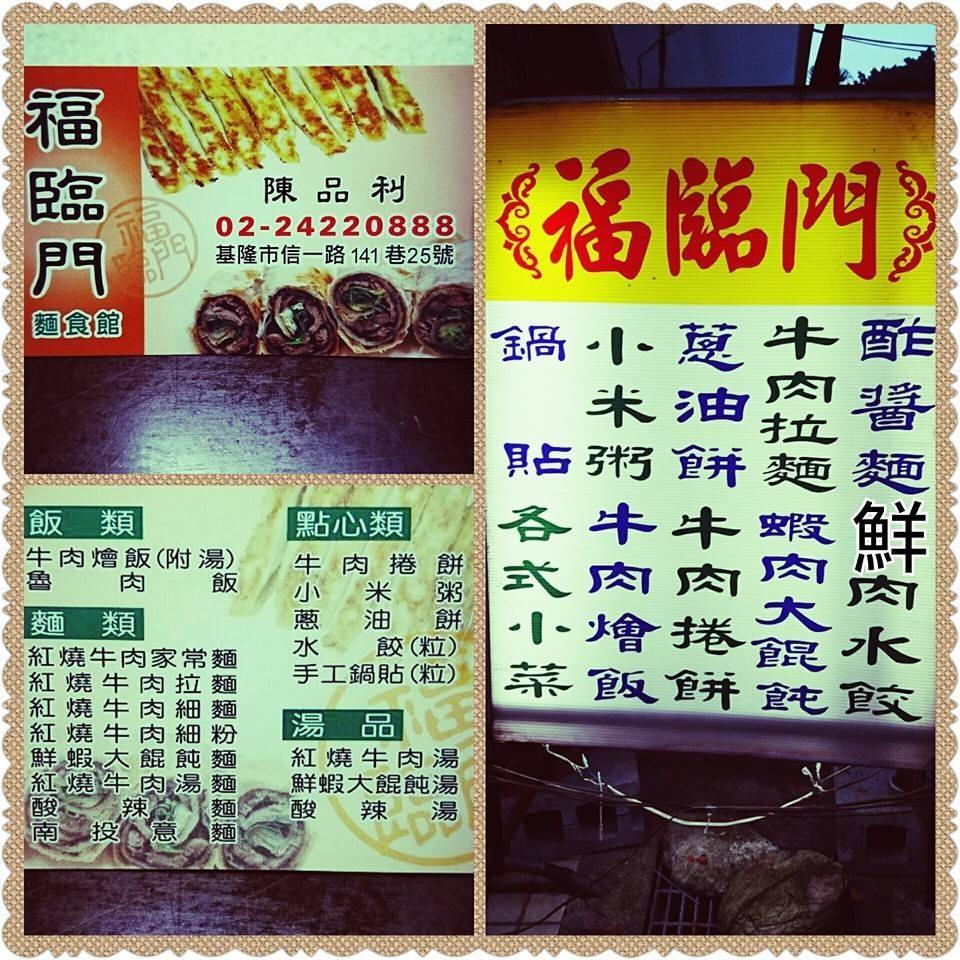 福臨門
麵食館
福臨門
陳品利
02-24220888
基隆市信一路141巷25號
飯類
牛肉燴飯(附湯)
魯肉飯
麵類
紅燒牛肉家常麵
紅燒牛肉拉麵
紅燒牛肉細麵
紅燒牛肉細粉
鮮蝦大餛飩麵
紅燒牛肉湯麵
酸辣麵
南投意麵
點心類
牛肉捲餅
小米粥
蔥油餅
水餃(粒)
手工鍋貼(粒)
湯品
紅燒牛肉湯
鮮蝦大餛飩湯
酸辣湯
福臨門
福臨門
酢醬麵
鮮肉水餃
牛肉拉麵
蝦肉大餛飩
蔥油餅
牛肉捲餅
小米粥
牛肉燴飯
鍋貼
各式小菜